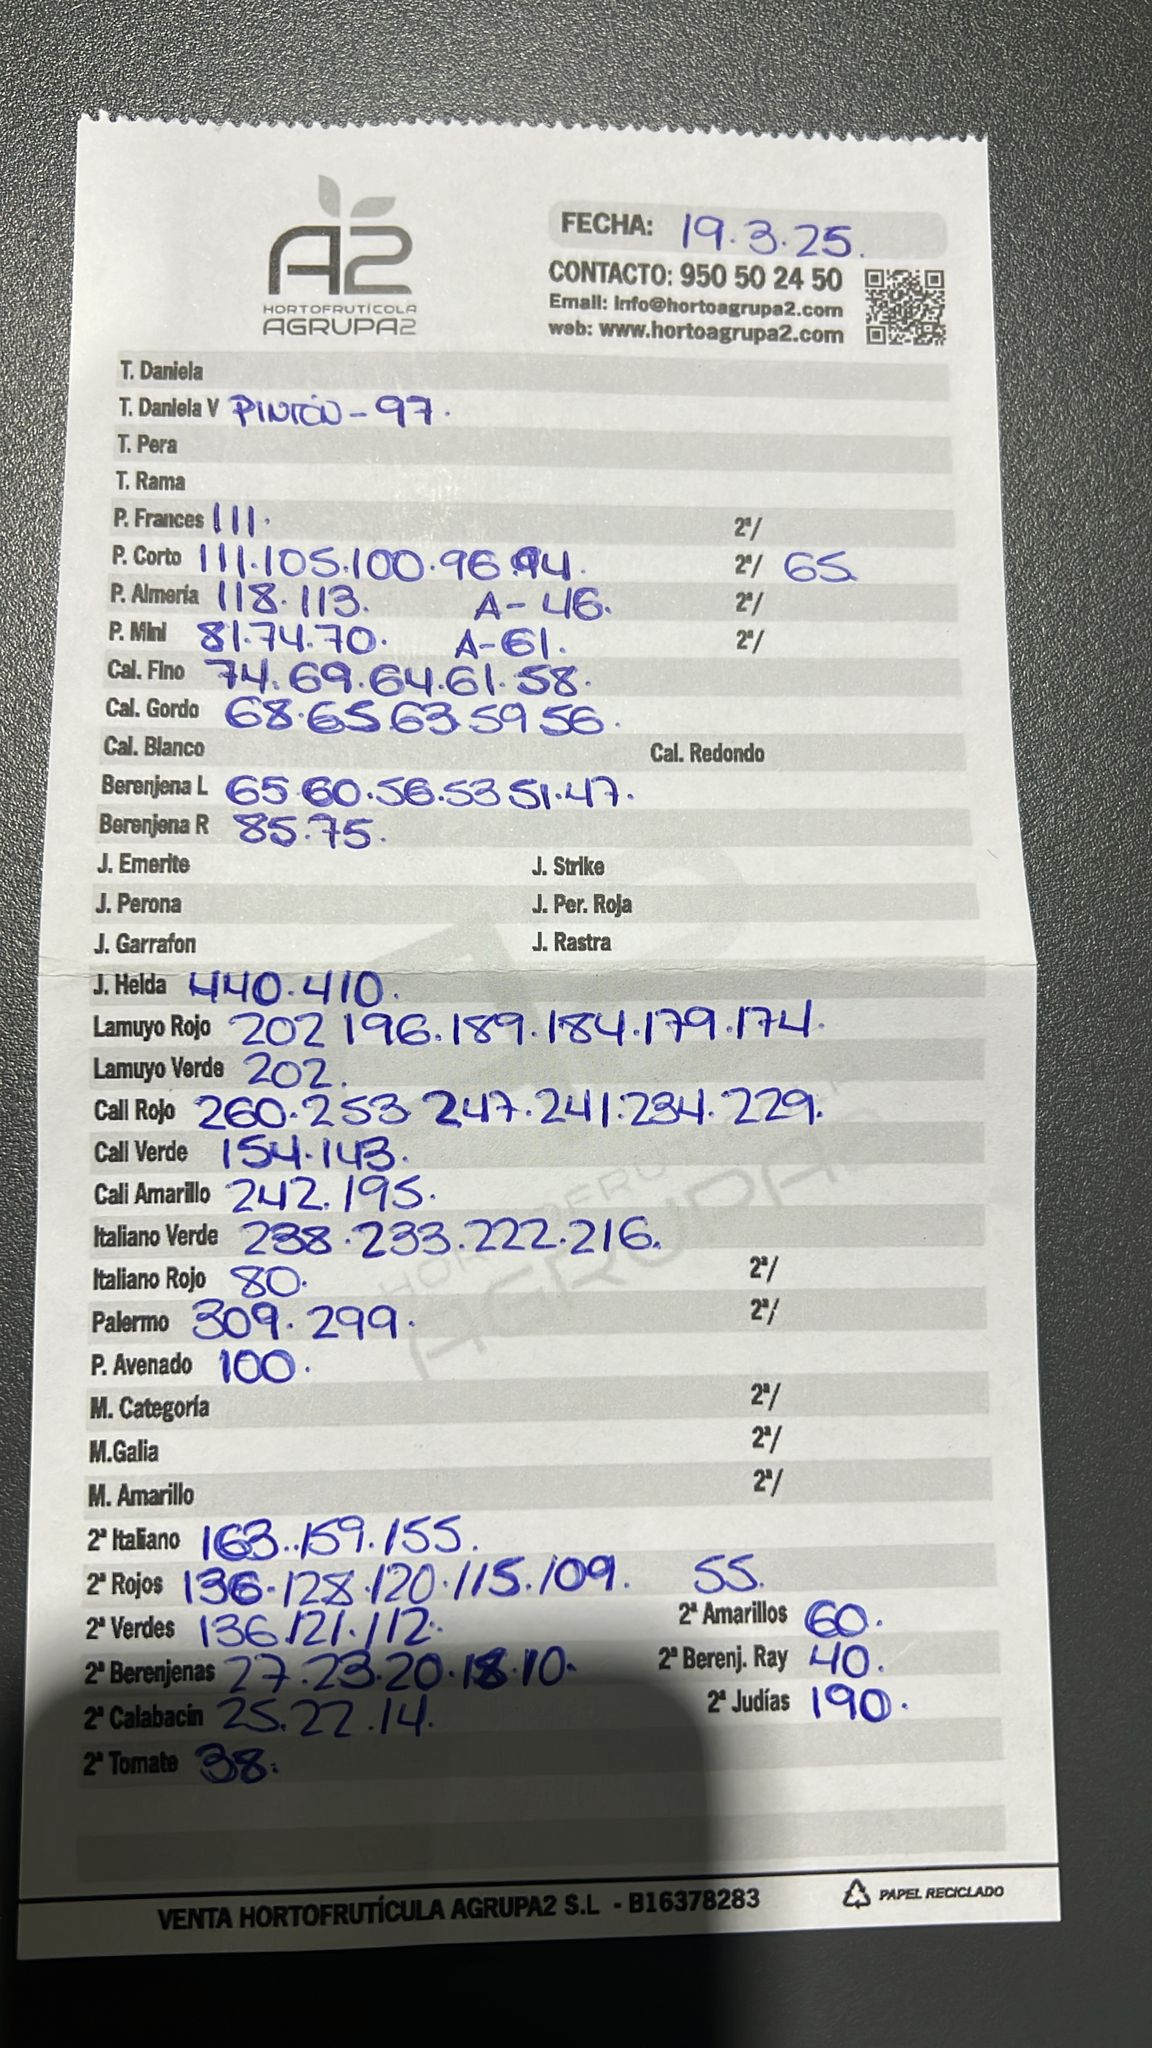 A2
HORTOFRUTÍCOLA
AGRUPA2
FECHA: 19.3.25.
CONTACTO: 950 50 24 50
Email: info@hortoagrupa2.com
web: www.hortoagrupa2.com
T. Daniela
T. Daniela V PINTÓN - 97.
T. Pera
T. Rama
P. Frances 111. 2ª/
P. Corto 111.105.100.96.94. 2ª/ 65.
P. Almería 118.113. A-46. 2ª/
P. Mini 81.74.70. A-61. 2ª/
Cal. Fino 74.69.64.61.58.
Cal. Gordo 68.65 63.59 56.
Cal. Blanco Cal. Redondo
Berenjena L 65 60.56.53 51.47.
Berenjena R 85.75.
J. Emerite J. Strike
J. Perona J. Per. Roja
J. Garrafon J. Rastra
J. Helda 440.410.
Lamuyo Rojo 202 196.189.184.179.174.
Lamuyo Verde 202.
Cali Rojo 260.253 247.241.234.229.
Cali Verde 154.143.
Cali Amarillo 242.195.
Italiano Verde 238.233.222.216.
Italiano Rojo 80. 2ª/
Palermo 309.299. 2ª/
P. Avenado 100.
M. Categoría 2ª/
M.Galia 2ª/
M. Amarillo 2ª/
2ª Italiano 163..159.155.
2ª Rojos 136.128.120.115.109. 55.
2ª Verdes 136.121.112. 2ª Amarillos 60.
2ª Berenjenas 27.23.20.18.10. 2ª Berenj. Ray 40.
2ª Calabacin 25.22.14. 2ª Judías 190.
2ª Tomate 38.
HORTOFRU
AGRUPA
VENTA HORTOFRUTÍCULA AGRUPA2 S.L - B16378283
PAPEL RECICLADO